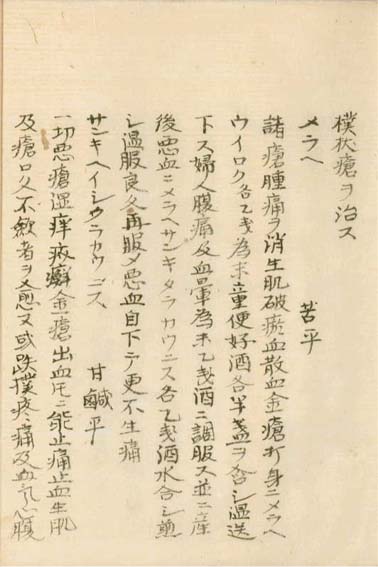 樸杖瘡ヲ治ス
メラヘ　苦平
諸瘡腫痛ヲ消生肌破瘀血散血金瘡打身ニメラヘ
ウイロク各乙戔為末童便好酒各半盞ヲ合シ温送
下ス婦人腹痛及血暈為末乙戔酒ニ調服ス並ニ産
後悪血ニメラヘサンキタラカウニス各乙戔酒水合シ煎
シ温服良久再服〆悪血自下テ更不生痛
サンキヘイシウラカウニス　甘鹹平
一切悪瘡湿痒疥癬金瘡出血厇ニ能止痛止血生肌
及瘡口久不歛者ヲ愈又或跌撲疼痛及血气心腹